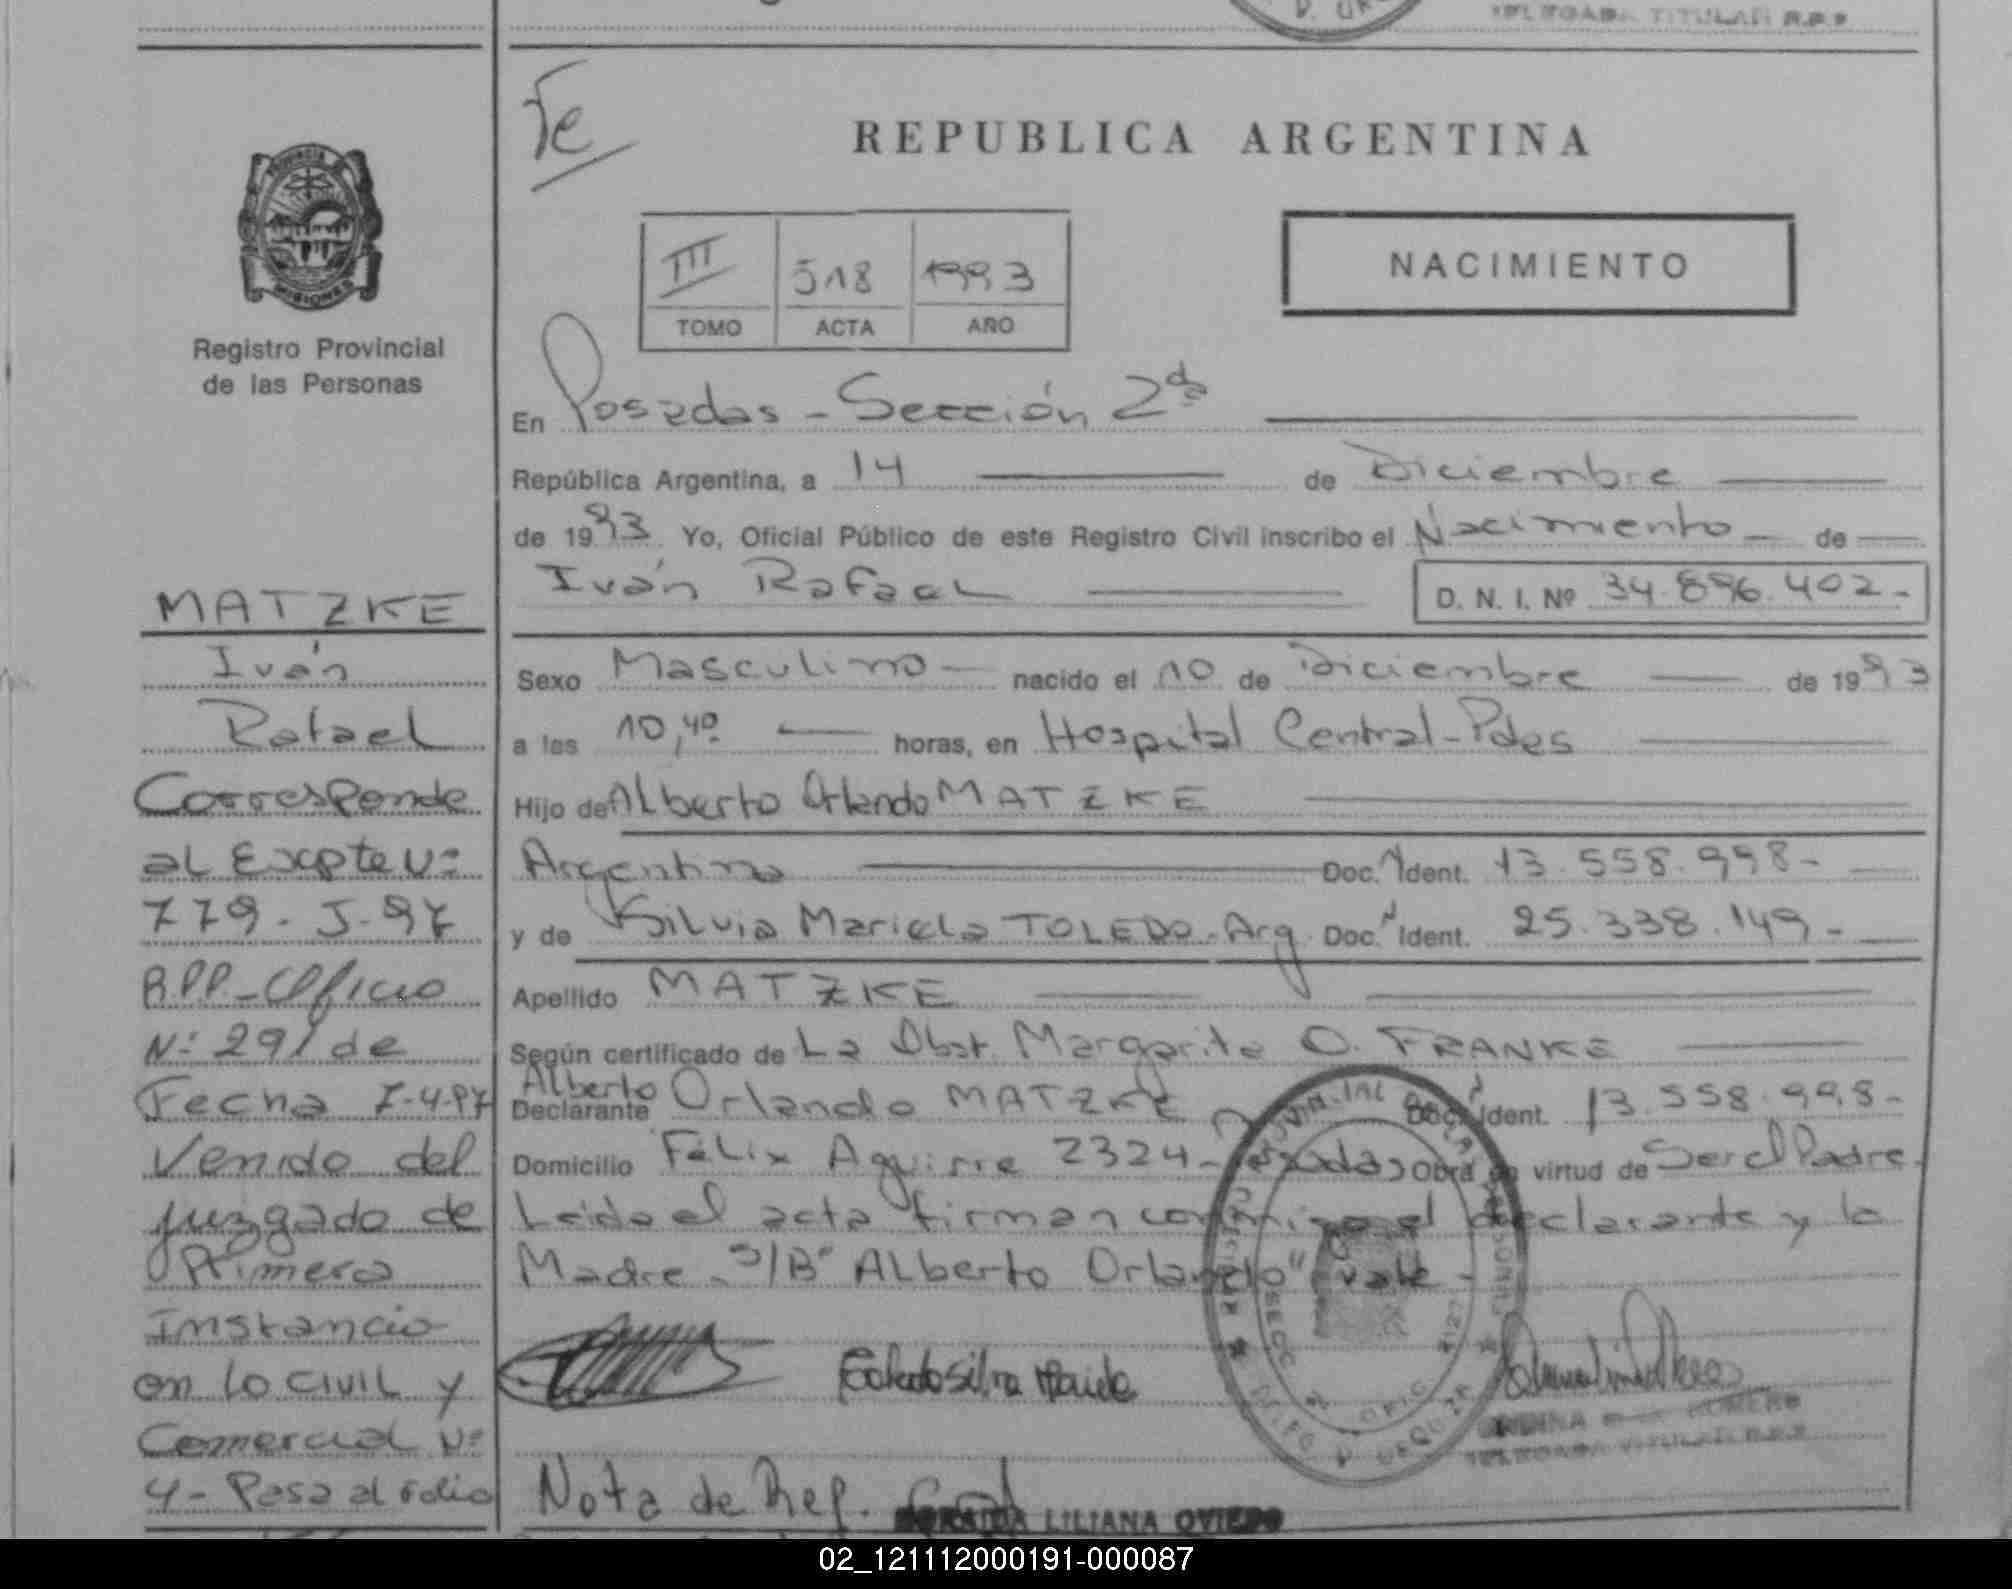 TELEGADA TITULAR R.P.P.
Fe
REPUBLICA ARGENTINA
III 518 1993
TOMO ACTA AÑO
NACIMIENTO
PROVINCIA
MISIONES
Registro Provincial
de las Personas
En Posadas - Sección 2da
República Argentina, a 14 de Diciembre
de 1993. Yo, Oficial Público de este Registro Civil inscribo el Nacimiento de
Iván Rafael D. N. I. Nº 34.896.402-
Sexo Masculino nacido el 10 de Diciembre de 1993
a las 10,40 horas, en Hospital Central - Pdas
Hijo de Alberto Orlando MATZKE
Argentino Doc. Ident. 13.558.998-
y de Silvia Mariela TOLEDO - Arg. Doc. Ident. 25.338.149-
Apellido MATZKE
Según certificado de La Obst. Margarita O. FRANKE
Alberto
Declarante Orlando MATZKE Doc. Ident. 13.558.998-
Domicilio Félix Aguirre 2324- Posadas Obra en virtud de Ser el Padre.
Leída el acta firman conmigo el declarante y la
Madre - S/B "Alberto Orlando" vale -
Toledo Silvia
TITULAR R.P.P.
Nota de Ref.
LILIANA OVIEDO
MATZKE
Iván
Rafael
Corresponde
al Expte Nº
779 - J - 97
R.P.P. - Oficio
Nº 291 de
Fecha 7-4-97
Venido del
juzgado de
Primera
Instancia
en lo civil y
Comercial Nº
4 - Pasa al folio
02_121112000191-000087